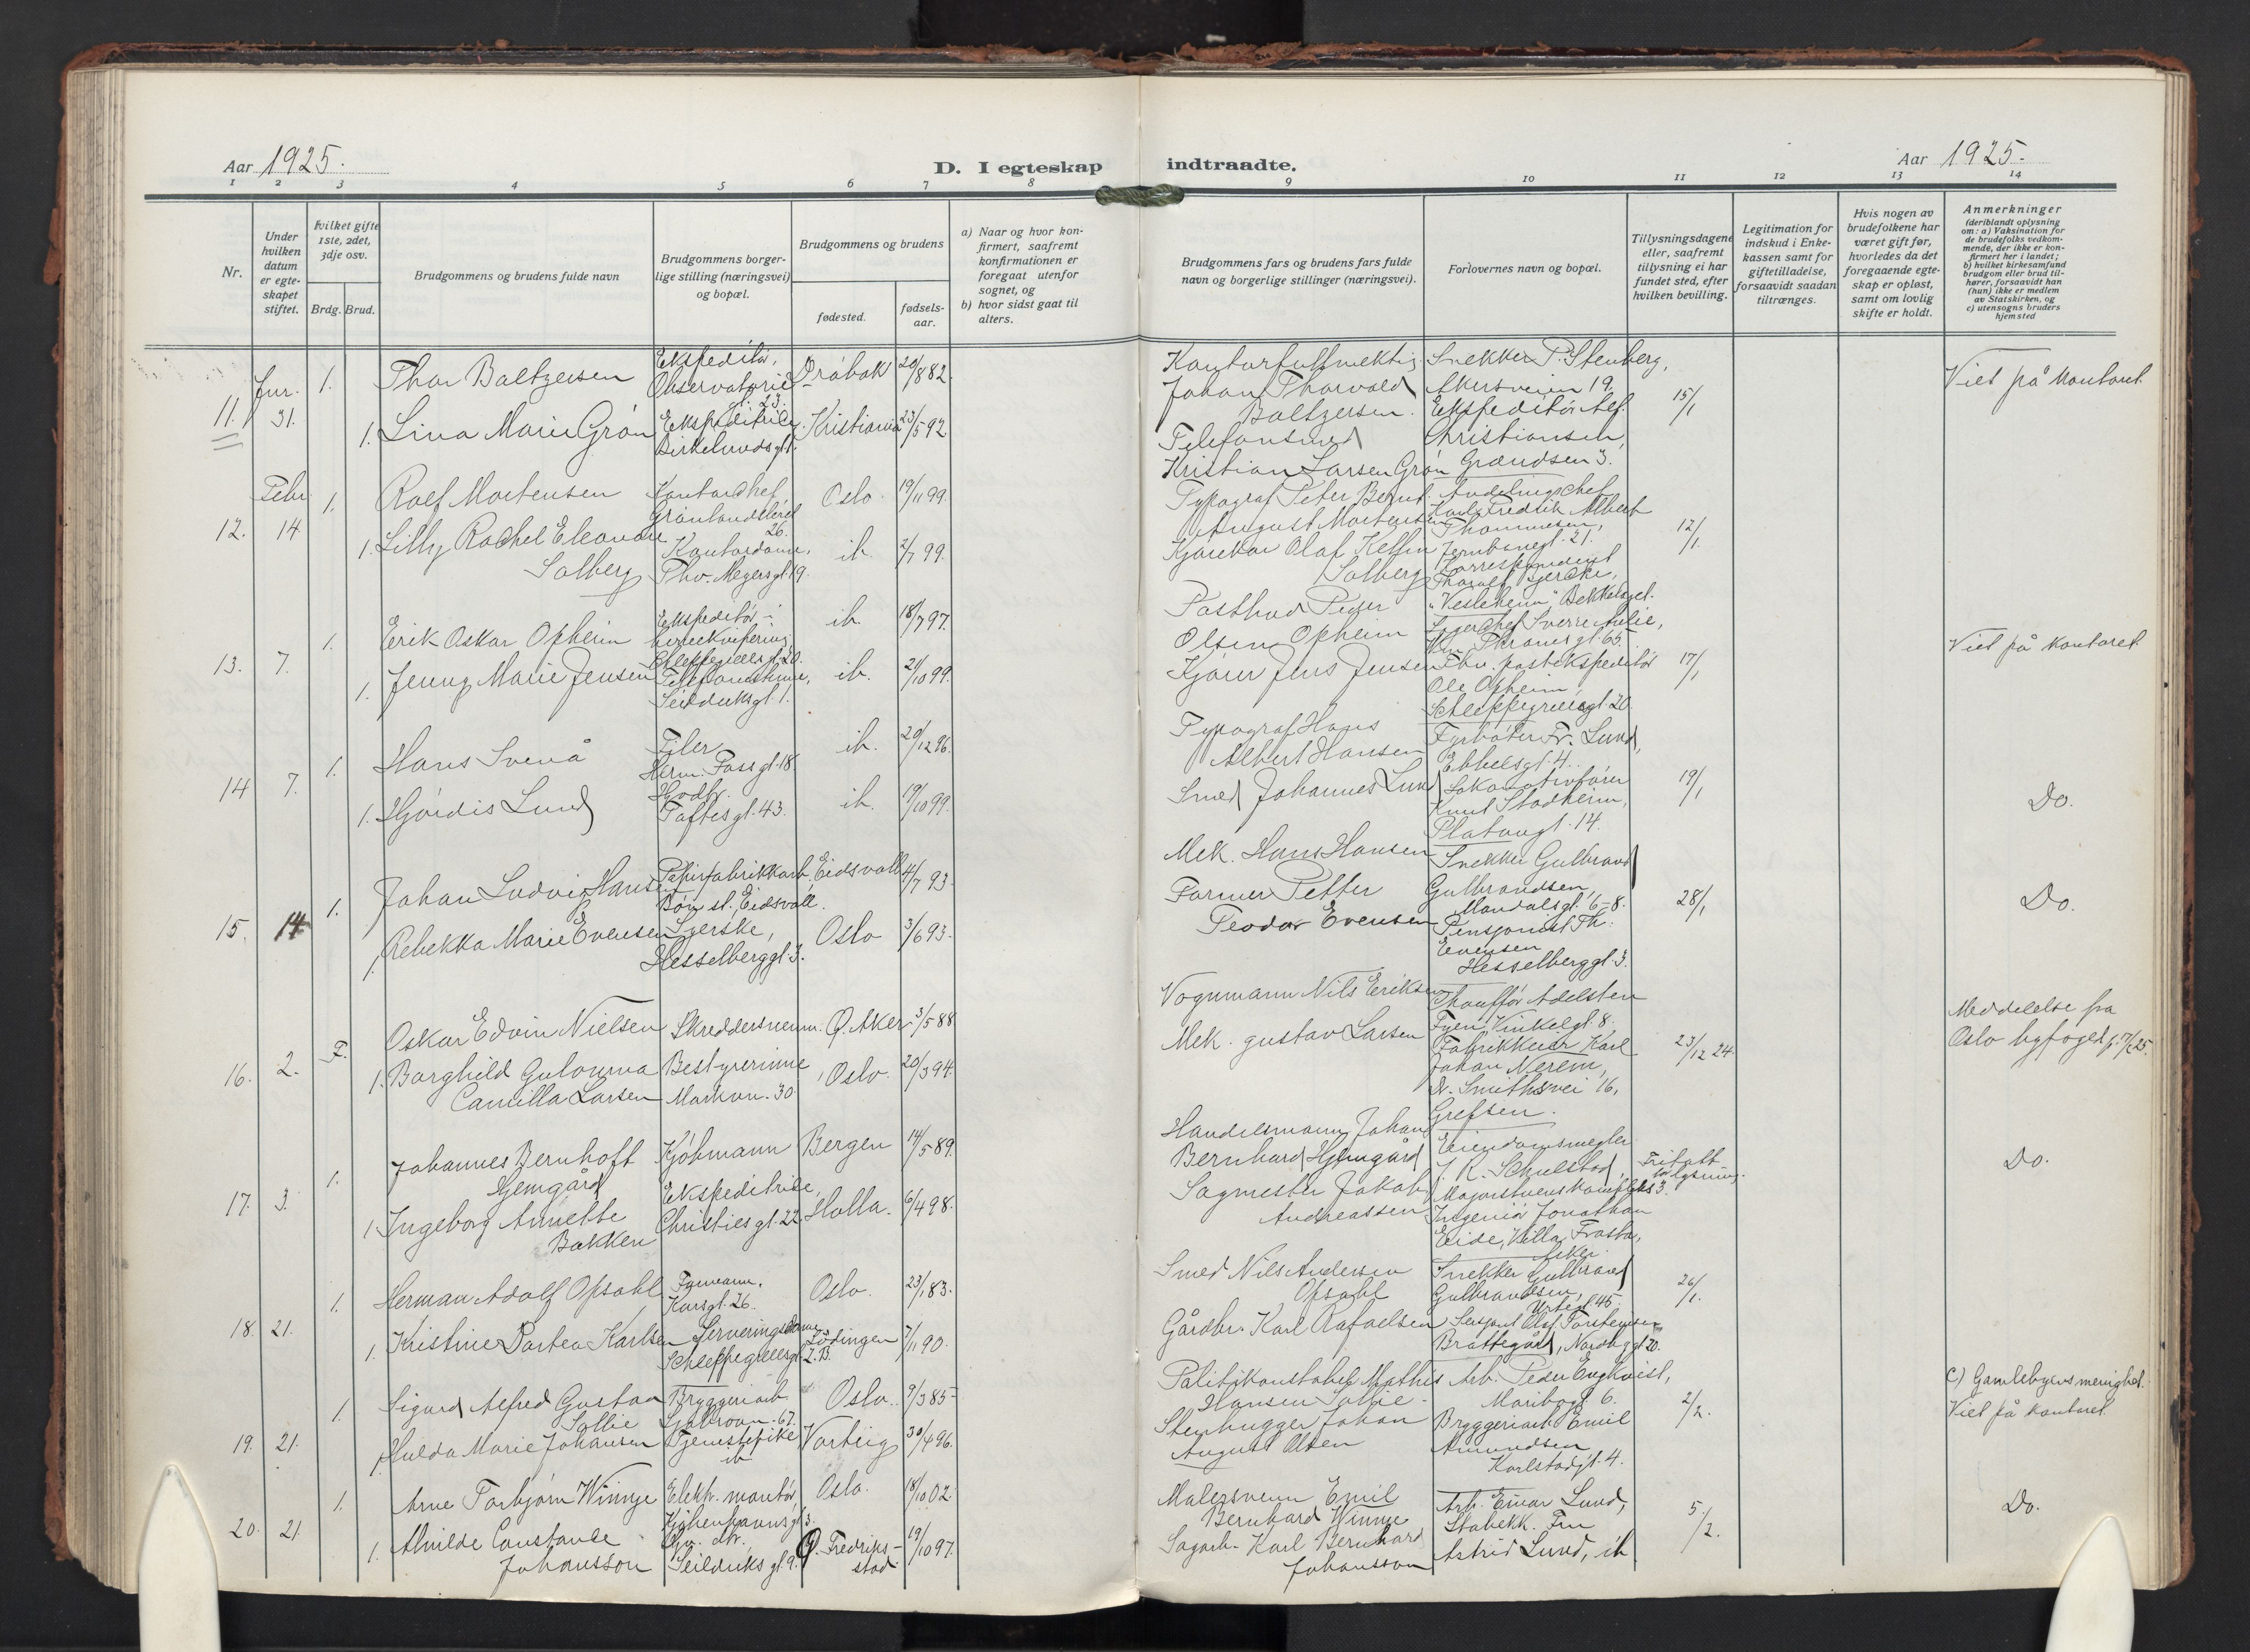 Aar 1925.
D. I egteskap indtraadte.
Aar 1925.
1 2 3 4 5 6 7 8 9 10 11 12 13 14
Nr.
Under hvilken datum er egteskapet stiftet.
Hvilket gifte 1ste, 2det, 3dje osv.
Brdg. Brud.
Brudgommens og brudens fulde navn
Brudgommens borgerlige stilling (næringsvei) og bopæl.
Brudgommens og brudens
fødested.
fødselsaar.
a) Naar og hvor konfirmert, saafremt konfirmationen er foregaat utenfor sognet, og
b) hvor sidst gaat til alters.
Brudgommens fars og brudens fars fulde navn og borgerlige stillinger (næringsvei).
Forlovernes navn og bopæl.
Tillysningsdagene eller, saafremt tillysning ei har fundet sted, efter hvilken bevilling.
Legitimation for indskud i Enkekassen samt for giftetilladelse, forsaavidt saadan tiltrænges.
Hvis nogen av brudefolkene har været gift før, hvorledes da det foregaaende egteskap er opløst, samt om lovlig skifte er holdt.
Anmerkninger (deriblandt oplysning om: a) Vaksination for de brudefolks vedkommende, der ikke er konfirmert her i landet; b) hvilket kirkesamfund brudgom eller brud tilhører, forsaavidt han (hun) ikke er medlem av Statskirken, og c) utensogns bruders hjemsted
11. Jnr. 31.
1. Thor Baltzersen
Ekspeditør, Observatorie- gt. 23.
Drøbak 20/8 82.
1. Lina Marie Grøn
Ekspeditrice, Birkelundsgt.
Kristiania 23/5 92.
Kontorfullmektig Johan Thorvald Baltzersen.
Telefonsmed Kristian Larsen Grøn
Snekker P. Stenberg, Akersveien 19.
Ekspeditør Alf. Christiansen, Grændsen 3.
15/1
Viet på kontoret.
12. Febr. 14
1. Rolf Mortensen
Kontorchef, Grønlandsleret 26.
Oslo 19/11 99.
1. Lilly Rachel Eleonore Solberg
Kontordame, Thv. Meyersgt. 19.
ib. 2/7 99.
Typograf Peter Bernt August Mortensen
Kjørekar Olaf Solberg
Avdelingschef Karl Fredrik Albert Thommesen, Jernbanegt. 21.
Korrespondent
"Vesleheim" Bekkelaget.
12/1.
13. 7.
1. Erik Oskar Opheim
Ekspeditør i herreekvipering, Schleppegrellsgt. 20.
ib. 18/7 97.
1. Jenny Marie Jensen
Telefonistinne, Seilduksgt. 1.
ib. 21/10 99.
Postbud Peder Olsen Opheim
Kjører Jens Jensen
Lagerchef Sverre Aulie, Thranesgt. 65.
Fhv. postekspeditør Ole Opheim, Schleppegrellsgt. 20.
17/1
Viet på kontoret.
14 7.
1. Hans Svenå
Filer Herm. Fossgt. 18
ib. 20/12 96.
1. Hjørdis Lund
Toftesgt. 43.
ib. 19/10 99.
Typograf Hans Albert Hansen
Smed Johannes Lund
Fyrbøter Fr. Lund, Ebbelsgt. 4.
Lokomotivfører Knut Stadheim, Platougt. 14.
19/1
Do.
15. 14
1. Johan Ludvig Hansen
Papirfabrikkarb. Bøn st. Eidsvoll.
Eidsvoll 4/7 93.
1. Rebekka Marie Evensen
Syerske, Hesselberggt. 3.
Oslo 3/6 93.
Mek. Hans Hansen
Former Petter Teodor Evensen
Snekker Gulbrand Gulbrandsen, Mandalsgt. 6-8.
Pensjonist Th. Evensen Hesselberggt. 3.
28/1
Do.
16. 2.
F. Oskar Edvin Nielsen
Skreddersvenn.
Ø. Aker 3/5 88
1. Borghild Gulouna Camilla Larsen
Bestyrerinne, Markvn. 30
Oslo. 20/3 94.
Vognmann Nils Eriksen
Mek. Gustav Larsen
Chauffør Adelsten Fyen Vinkelgt. 8.
Fabrikkeier Karl Johan Nerem, Dr. Smithsvei 16, Grefsen.
23/12 24.
Meddelelse fra Oslo byfoged
17. 3.
1. Johannes Bernhoft Hjemgård
Kjøbmann
Bergen 14/5 89.
1. Ingeborg Annette Bakken
Ekspeditrise, Christiesgt. 22.
Holla. 6/4 98.
Handelsmann Johan Bernhard Hjemgård
Sagmester Jakob Andreassen
Eiendomsmegler J. K. Schulstad, Majorstuens Kompleks 3.
Ingeniør Jonathan Eide, Villa Frosta, Asker.
Fritatt for lysning.
Do.
18. 21.
1. Herman Adolf Opsahl
Formann. Korsgt. 26.
Oslo. 23/1 83.
1. Kristine Dortea Karlsen
Serveringsdame Schleppegrellsgt. 7. B.
Lødingen 7/11 90.
Smed Nils Andersen Opsahl
Gårdbr. Karl Rafaelsen
Snekker Gulbrand Gulbrandsen, Urtegt. 45.
Sersjant Olaf Torstensen Brattegård, Nordbygt. 20.
26/1.
19. 21.
1. Sigurd Alfred Gustav Sollie
Bryggeriarb. 67.
Oslo. 9/3 85
1. Hulda Marie Johansen
Tjenestepike ib
Varteig 30/4 96.
Politikonstabel Mathis Hansen Sollie.
Stenhugger Johan August Olsen
Arb. Peder Engkvist, Maribogt. 6.
Bryggeriarb. Emil Amundsen Karlstadgt. 4.
2/2.
C) Gamlebyens menighet.
Viet på kontoret
20. 21
1. Arne Torbjørn Winnje
Elektr. montør, Kjøbenhavnsgt. 3.
Oslo. 18/10 02.
1. Alvilde Constanse Johansson
Seilduksgt. 9.
Ø. Fredrikstad 19/10 97.
Malersvenn Emil Bernhard Winnje
Sagarb. Karl Bernhard Johansson
Arb. Einar Lund, Stabekk. Fru Astrid Lund, ib
5/2.
Do.